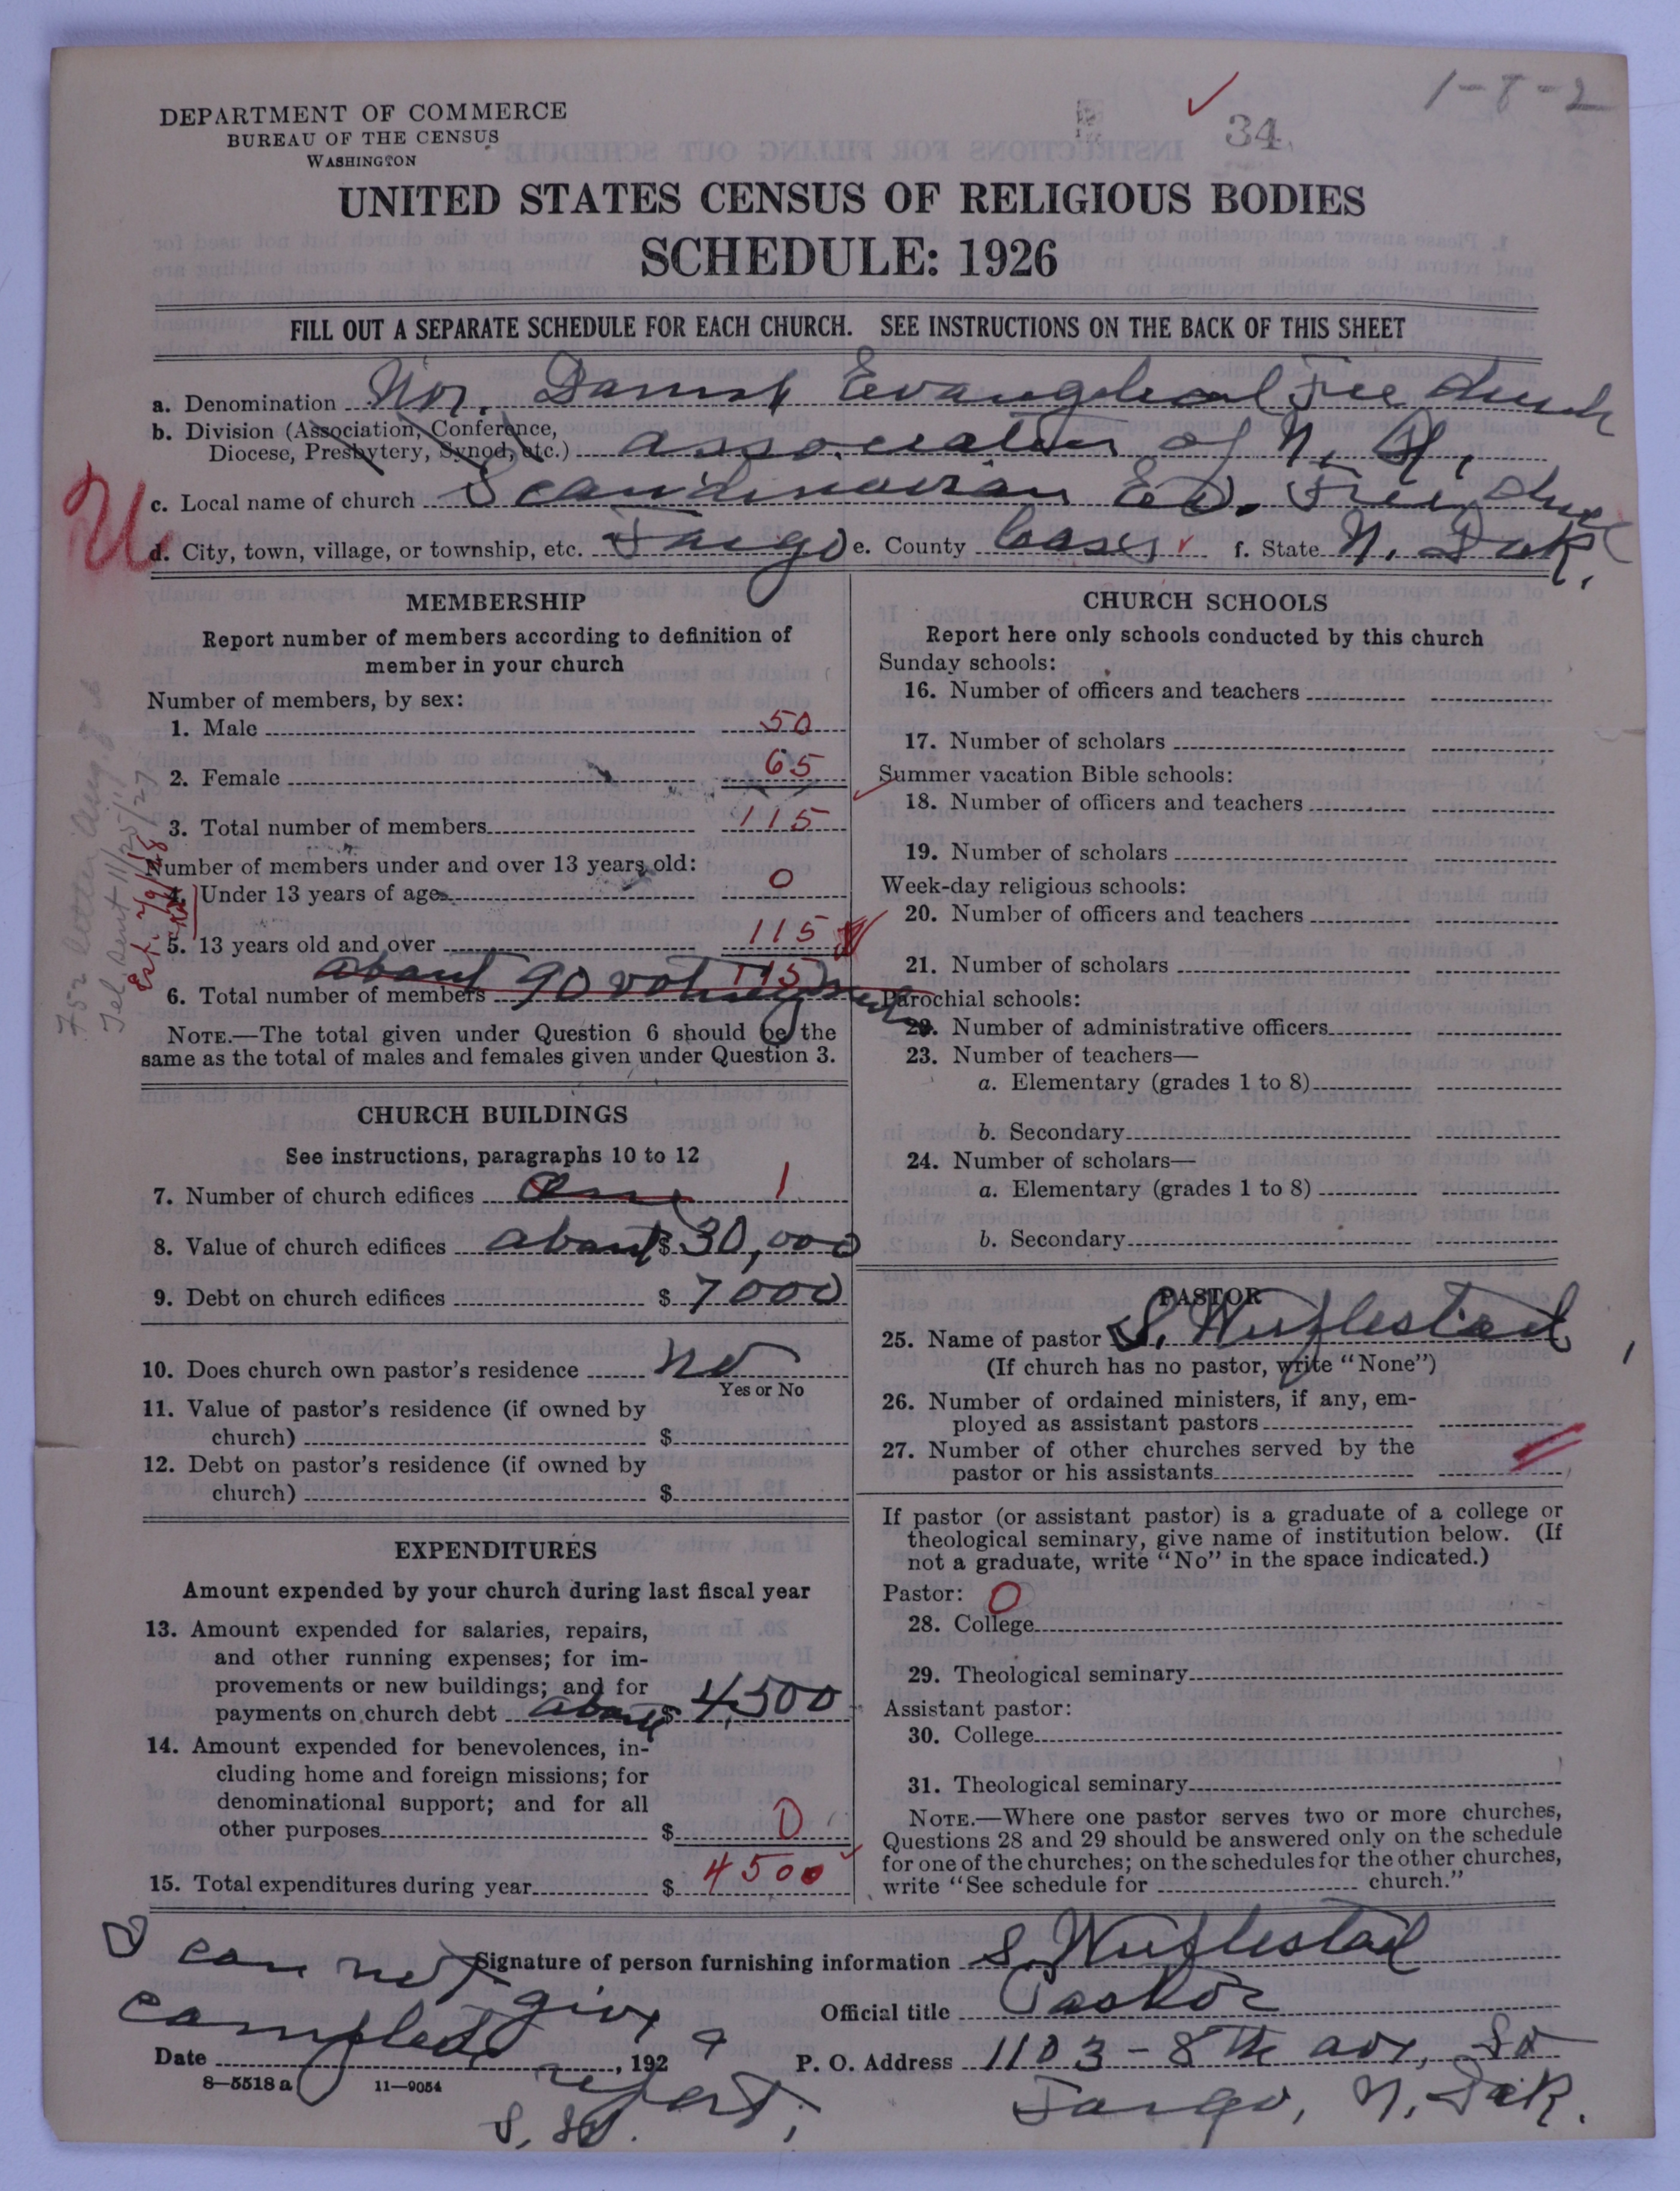 1-8-2
34.
DEPARTMENT OF COMMERCE
BUREAU OF THE CENSUS
WASHINGTON
UNITED STATES CENSUS OF RELIGIOUS BODIES
SCHEDULE: 1926
FILL OUT A SEPARATE SCHEDULE FOR EACH CHURCH. SEE INSTRUCTIONS ON THE BACK OF THIS SHEET
a. Denomination Nor. Danish Evangelical Free Church
b. Division (Association, Conference,
Diocese, Presbytery, Synod, etc.) association of N. A.
c. Local name of church Scandinavian Ev. Free Church
U
d. City, town, village, or township, etc. Fargo e. County Cass f. State N. Dak.
MEMBERSHIP
Report number of members according to definition of
member in your church
Number of members, by sex:
1. Male 50
2. Female 65
3. Total number of members 115
Number of members under and over 13 years old:
4. Under 13 years of age 0
5. 13 years old and over 115
6. Total number of members about 90 voting 115
NOTE.—The total given under Question 6 should be the
same as the total of males and females given under Question 3.
letter Aug.
Tel. sent 11/25/27
Est.
CHURCH BUILDINGS
See instructions, paragraphs 10 to 12
7. Number of church edifices One 1
8. Value of church edifices about $ 30,000
9. Debt on church edifices $ 7000
10. Does church own pastor's residence no
Yes or No
11. Value of pastor's residence (if owned by
church) $
12. Debt on pastor's residence (if owned by
church) $
EXPENDITURES
Amount expended by your church during last fiscal year
13. Amount expended for salaries, repairs,
and other running expenses; for im-
provements or new buildings; and for
payments on church debt about $ 4,500
14. Amount expended for benevolences, in-
cluding home and foreign missions; for
denominational support; and for all
other purposes $ 0
15. Total expenditures during year $ 4500
CHURCH SCHOOLS
Report here only schools conducted by this church
Sunday schools:
16. Number of officers and teachers
17. Number of scholars
Summer vacation Bible schools:
18. Number of officers and teachers
19. Number of scholars
Week-day religious schools:
20. Number of officers and teachers
21. Number of scholars
Parochial schools:
22. Number of administrative officers
23. Number of teachers—
a. Elementary (grades 1 to 8)
b. Secondary
24. Number of scholars—
a. Elementary (grades 1 to 8)
b. Secondary
PASTOR
25. Name of pastor S. Wuflestad
(If church has no pastor, write "None")
26. Number of ordained ministers, if any, em-
ployed as assistant pastors
27. Number of other churches served by the
pastor or his assistants
If pastor (or assistant pastor) is a graduate of a college or
theological seminary, give name of institution below. (If
not a graduate, write "No" in the space indicated.)
Pastor: 0
28. College
29. Theological seminary
Assistant pastor:
30. College
31. Theological seminary
NOTE.—Where one pastor serves two or more churches,
Questions 28 and 29 should be answered only on the schedule
for one of the churches; on the schedules for the other churches,
write "See schedule for church."
Signature of person furnishing information S Wuflestad
Official title Pastor
Date , 192
P. O. Address 1103 - 8th ave, So
Fargo, N. Dak.
8—5518 a 11—9054
I can not give a
complete report,
S. W.